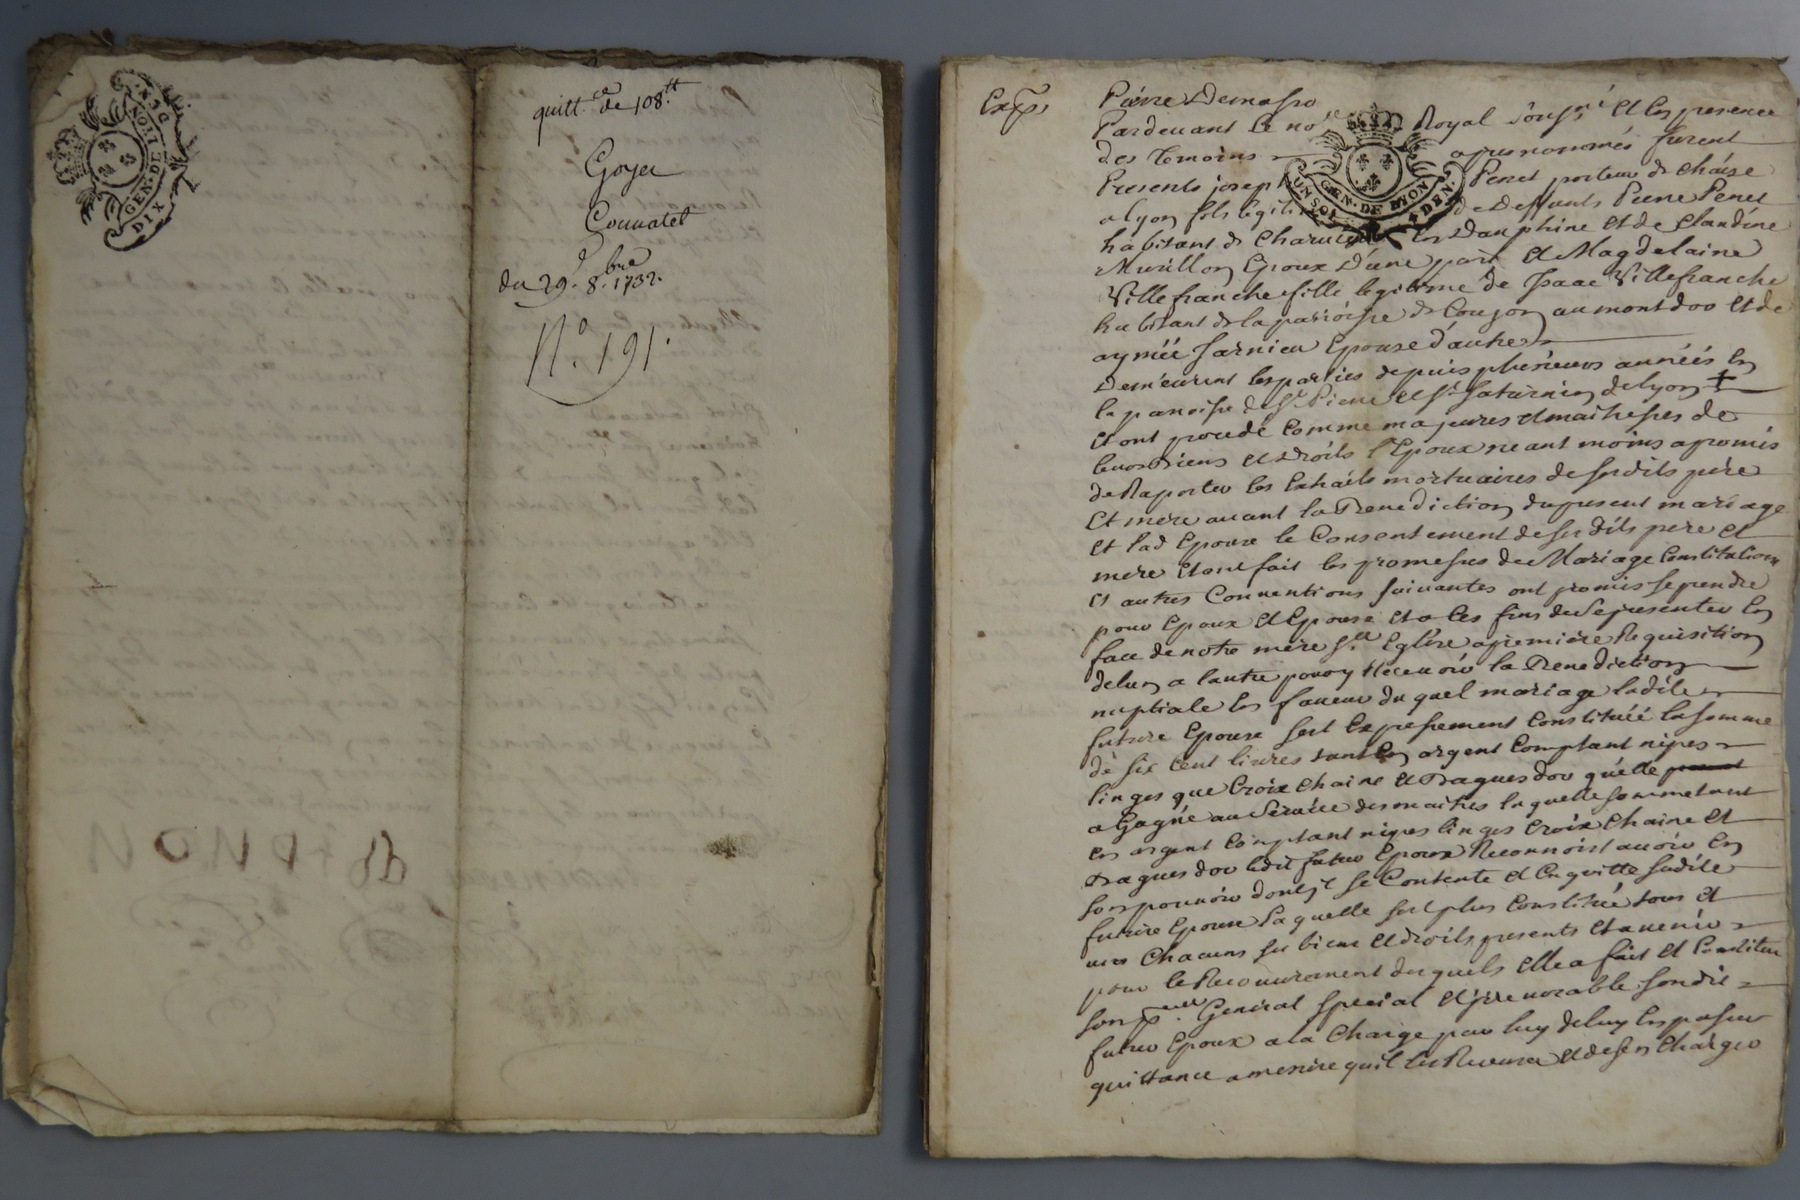 DIX DEN.
GEN. DE LION
quitt.ce de 108.tt
Goyer
Couvatet
du 29. 8.bre 1732.
N.o 191.
Exp.
Pierre Demasso
Pardevant le no.re Royal sousné Et En presence
des temoins apres nommés furent
Presents josep Penet porteur de chaise
a lyon fils legiti de deffunts Pierre Penet
habitant de En Dauphine et de Claudine
Murillon Epoux d'une part et Magdelaine
Villefranche fille legitime de Isaac Villefranche
habitant de la paroisse de Couzon au mont dor et de
aymée farnieu Epouse d'autre
Demeurent les parties depuis plusieurs années En
la paroisse de St Pierre et St Saturnin de lyon +
Et ont procedé comme majeures et maitresses de
leurs Biens et droits l'Epoux neant moins a promis
de Raporter les Extraits mortuaires de sesdits pere
Et mere avant la Benediction du present mariage
et lad Epouse le Consentement de ses dits pere et
mere Et ont fait les promesses de Mariage Constitution
et autres Conventions suivantes ont promis se prendre
pour Epoux et Epouse Et a ces fins de se presenter En
face de notre mere Ste Eglise a premiere Requisition
de lun a lautre pour y Recevoir la Benediction
nuptiale En faveur du quel mariage ladite
future Epouse sest Expressement Constituée la somme
de six Cent livres tant En argent Comptant nipes
linges que Croix chaine et Bagues dor qu'elle
a Gagné au Service des maitres laquelle somme tant
En argent Comptant nipes linges Croix chaine et
Bagues dor ledit futur Epoux Reconnoist avoir En
son pouvoir dont il se Contente et En quitte sadite
future Epouse laquelle sest plus Constitué tous et
uns Chacuns ses biens et droits presents et avenir
pour le Recouvrement desquels elle a fait et Constitué
son General special et irrevocable sondit
futur Epoux a la Charge par luy delui En passer
quittance a mesure quil les Recevra et de sen Charger
GEN. DE LYON
UN SOL 4 DEN.